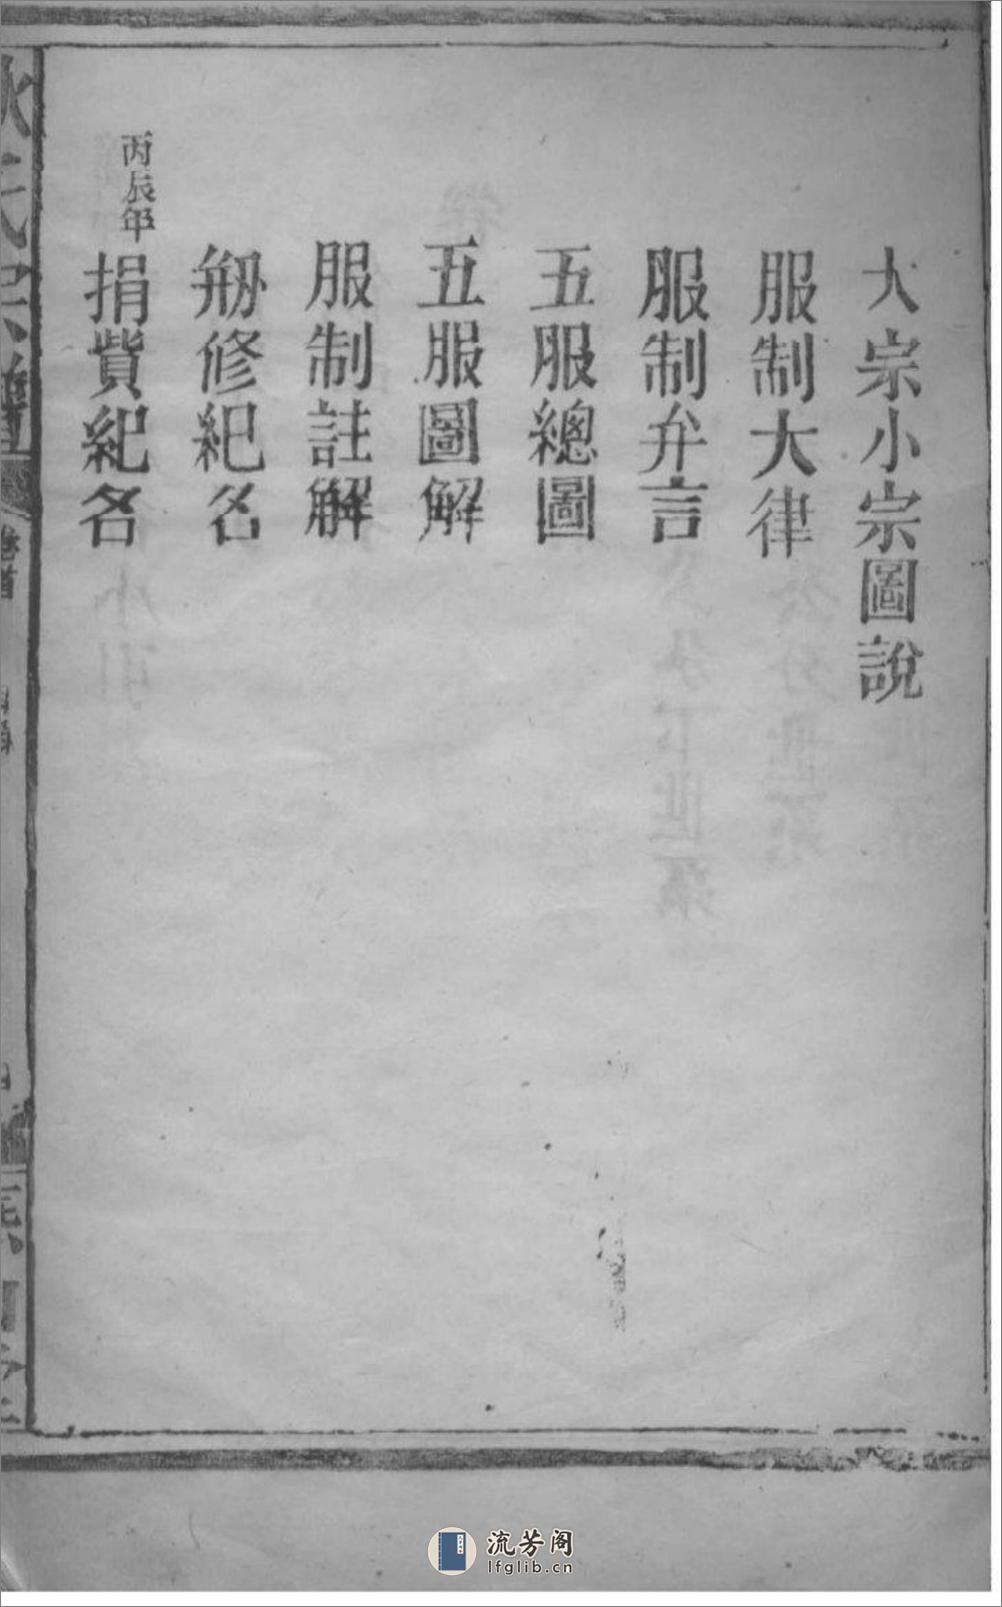 大宗小宗圖說
服制大律
服制弁言
五服總圖
五服圖解
服制註解
剏修紀名
丙辰年
捐貲紀名
氏宗譜
卷首
流芳阁
lfglib.cn